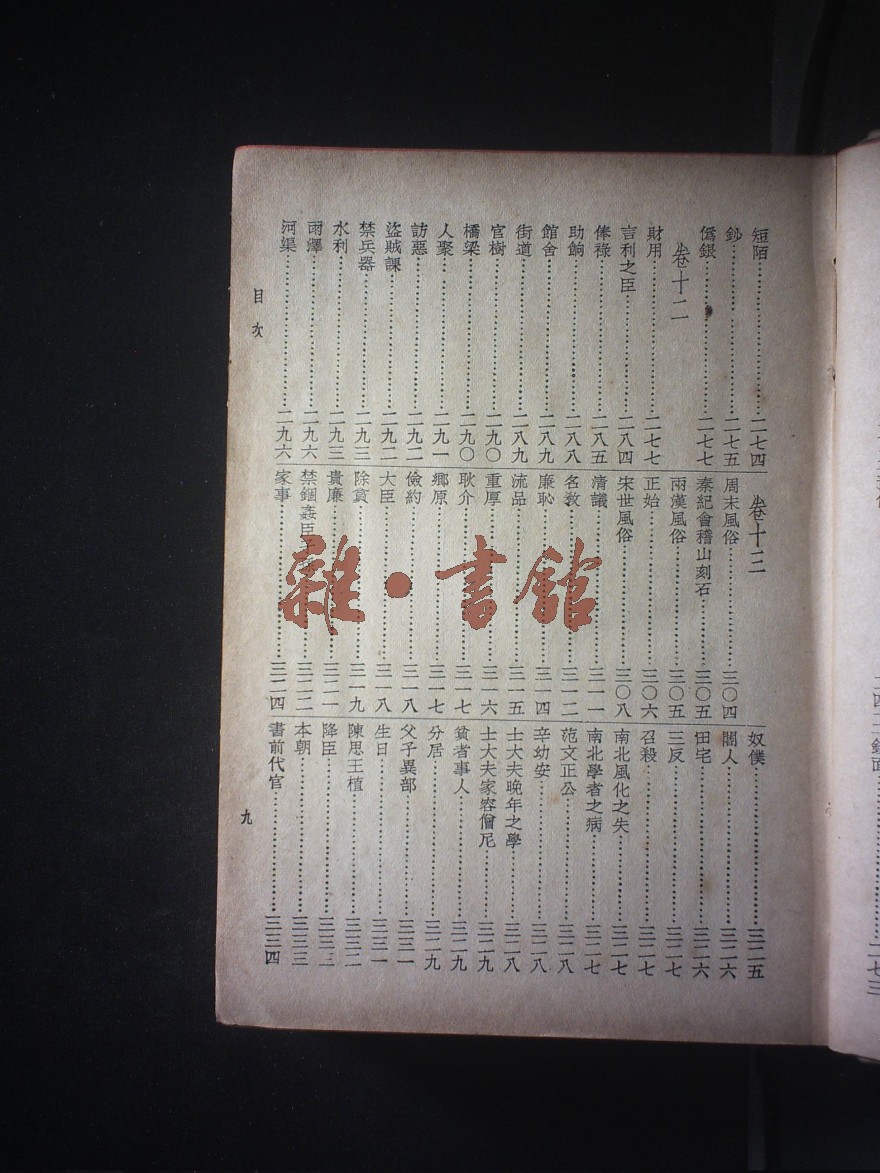 短陌……二七四
鈔……二七五
僞銀……二七七
卷十二
財用……二七七
言利之臣……二八四
俸祿……二八五
助餉……二八八
館舍……二八九
街道……二八九
官樹……二九〇
橋梁……二九〇
人聚……二九一
訪惡……二九二
盜賊課……二九二
禁兵器……二九三
水利……二九三
雨澤……二九六
河渠……二九六
卷十三
周末風俗……三〇四
秦紀會稽山刻石……三〇五
兩漢風俗……三〇五
正始……三〇六
宋世風俗……三〇八
清議……三一一
名敎……三一二
廉恥……三一四
流品……三一五
重厚……三一六
耿介……三一七
鄉原……三一七
儉約……三一八
大臣……三一八
除貪……三一九
貴廉……三二一
禁錮姦臣子……三二二
家事……三二四
奴僕……三二五
閽人……三二六
田宅……三二六
三反……三二七
召殺……三二七
南北風化之失……三二七
南北學者之病……三二七
范文正公……三二八
辛幼安……三二八
士大夫晚年之學……三二八
士大夫家容僧尼……三二九
貧者事人……三二九
分居……三二九
父子異部……三三一
生日……三三一
陳思王植……三三二
降臣……三三三
本朝……三三三
書前代官……三三四
目次
九
雜·書館